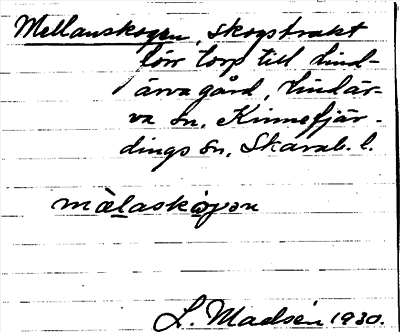 Mellanskogen, skogstrakt
förr torp till Lind-
ärva gård, Lindär-
va sn. Kinnefjär-
dings sn. Skarab. l.
mèlaskògən
L. Madsén 1930.